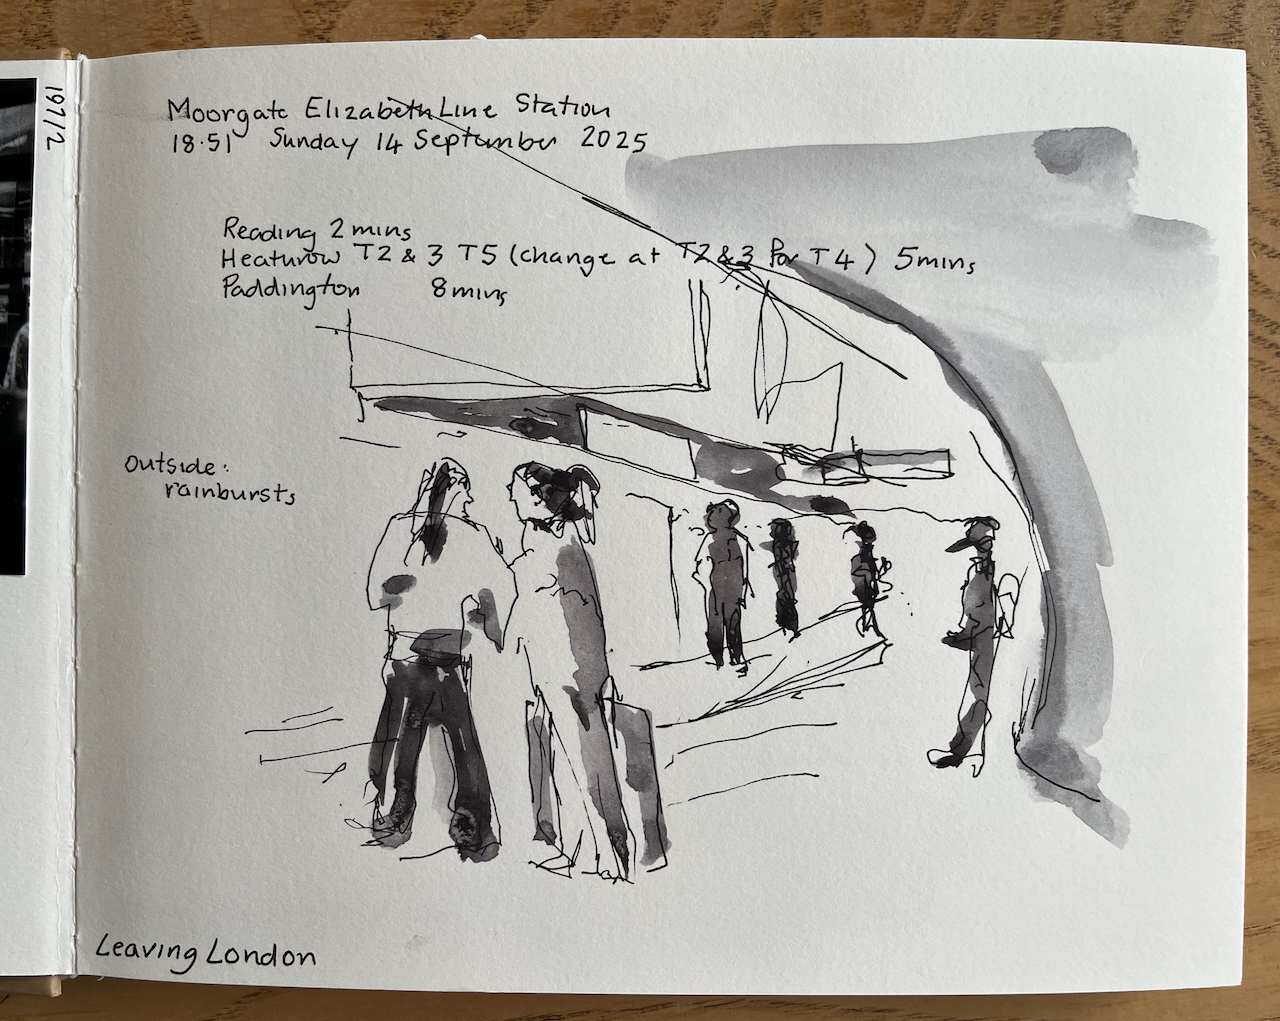 197/2
Moorgate Elizabeth Line Station
18.51 Sunday 14 September 2025
Reading 2 mins
Heathrow T2 & 3 T5 (change at T2 & 3 for T4) 5mins
Paddington 8 mins
Outside:
rainbursts
Leaving London